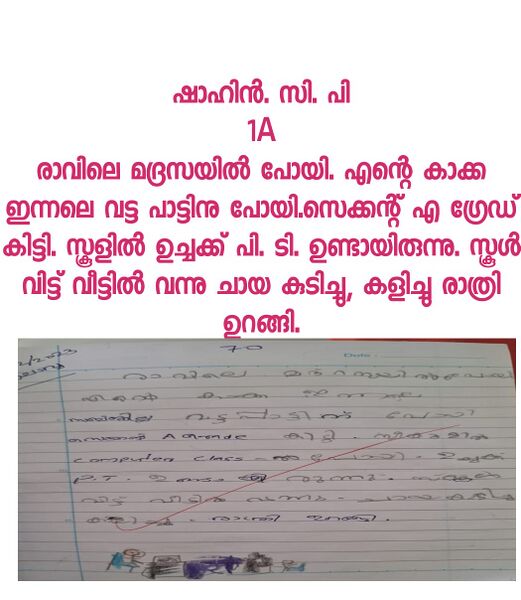 ഷാഹിൻ. സി. പി
1A
രാവിലെ മദ്രസയിൽ പോയി. എന്റെ കാക്ക
ഇന്നലെ വട്ട പാട്ടിനു പോയി.സെക്കന്റ് എ ഗ്രേഡ്
കിട്ടി. സ്കൂളിൽ ഉച്ചക്ക് പി. ടി. ഉണ്ടായിരുന്നു. സ്കൂൾ
വിട്ട് വീട്ടിൽ വന്നു ചായ കുടിച്ചു, കളിച്ചു രാത്രി
ഉറങ്ങി.
70
Date
രാവിലെ
കാക്ക
വട്ടപ്പാട്ടിന് പോയി
A Grade കിട്ടി.
Computer Class
P.T.
വിട്ട് വീട്ടിൽ വന്നു.
രാത്രി ഉറങ്ങി.